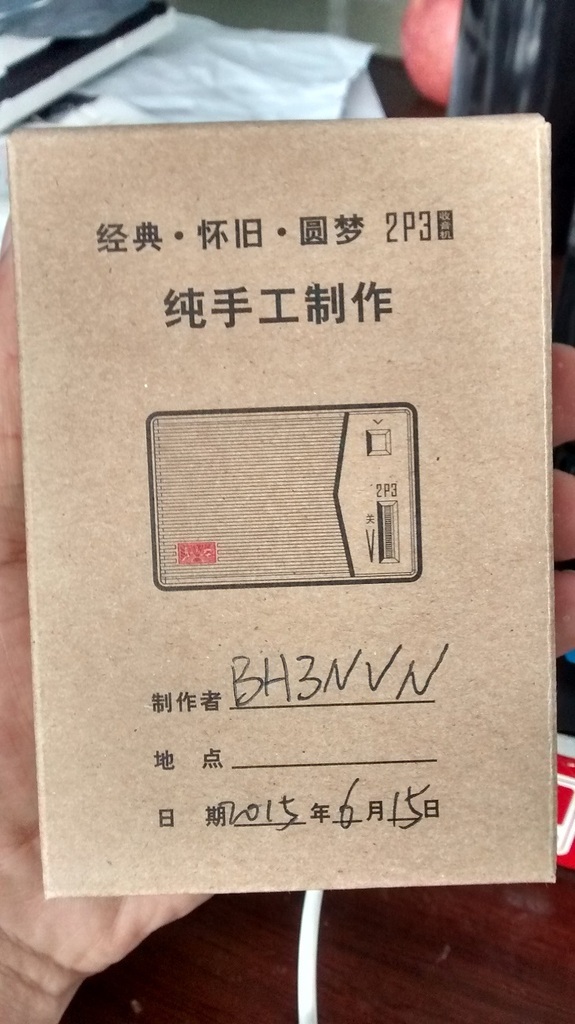 经典·怀旧·圆梦 2P3收音机
纯手工制作
2P3
关
制作者 BH3NVN
地点
日期 2015年6月15日